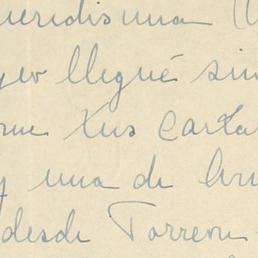 queridisima
yer llegué sin
tus carta
y una de
desde Torreon